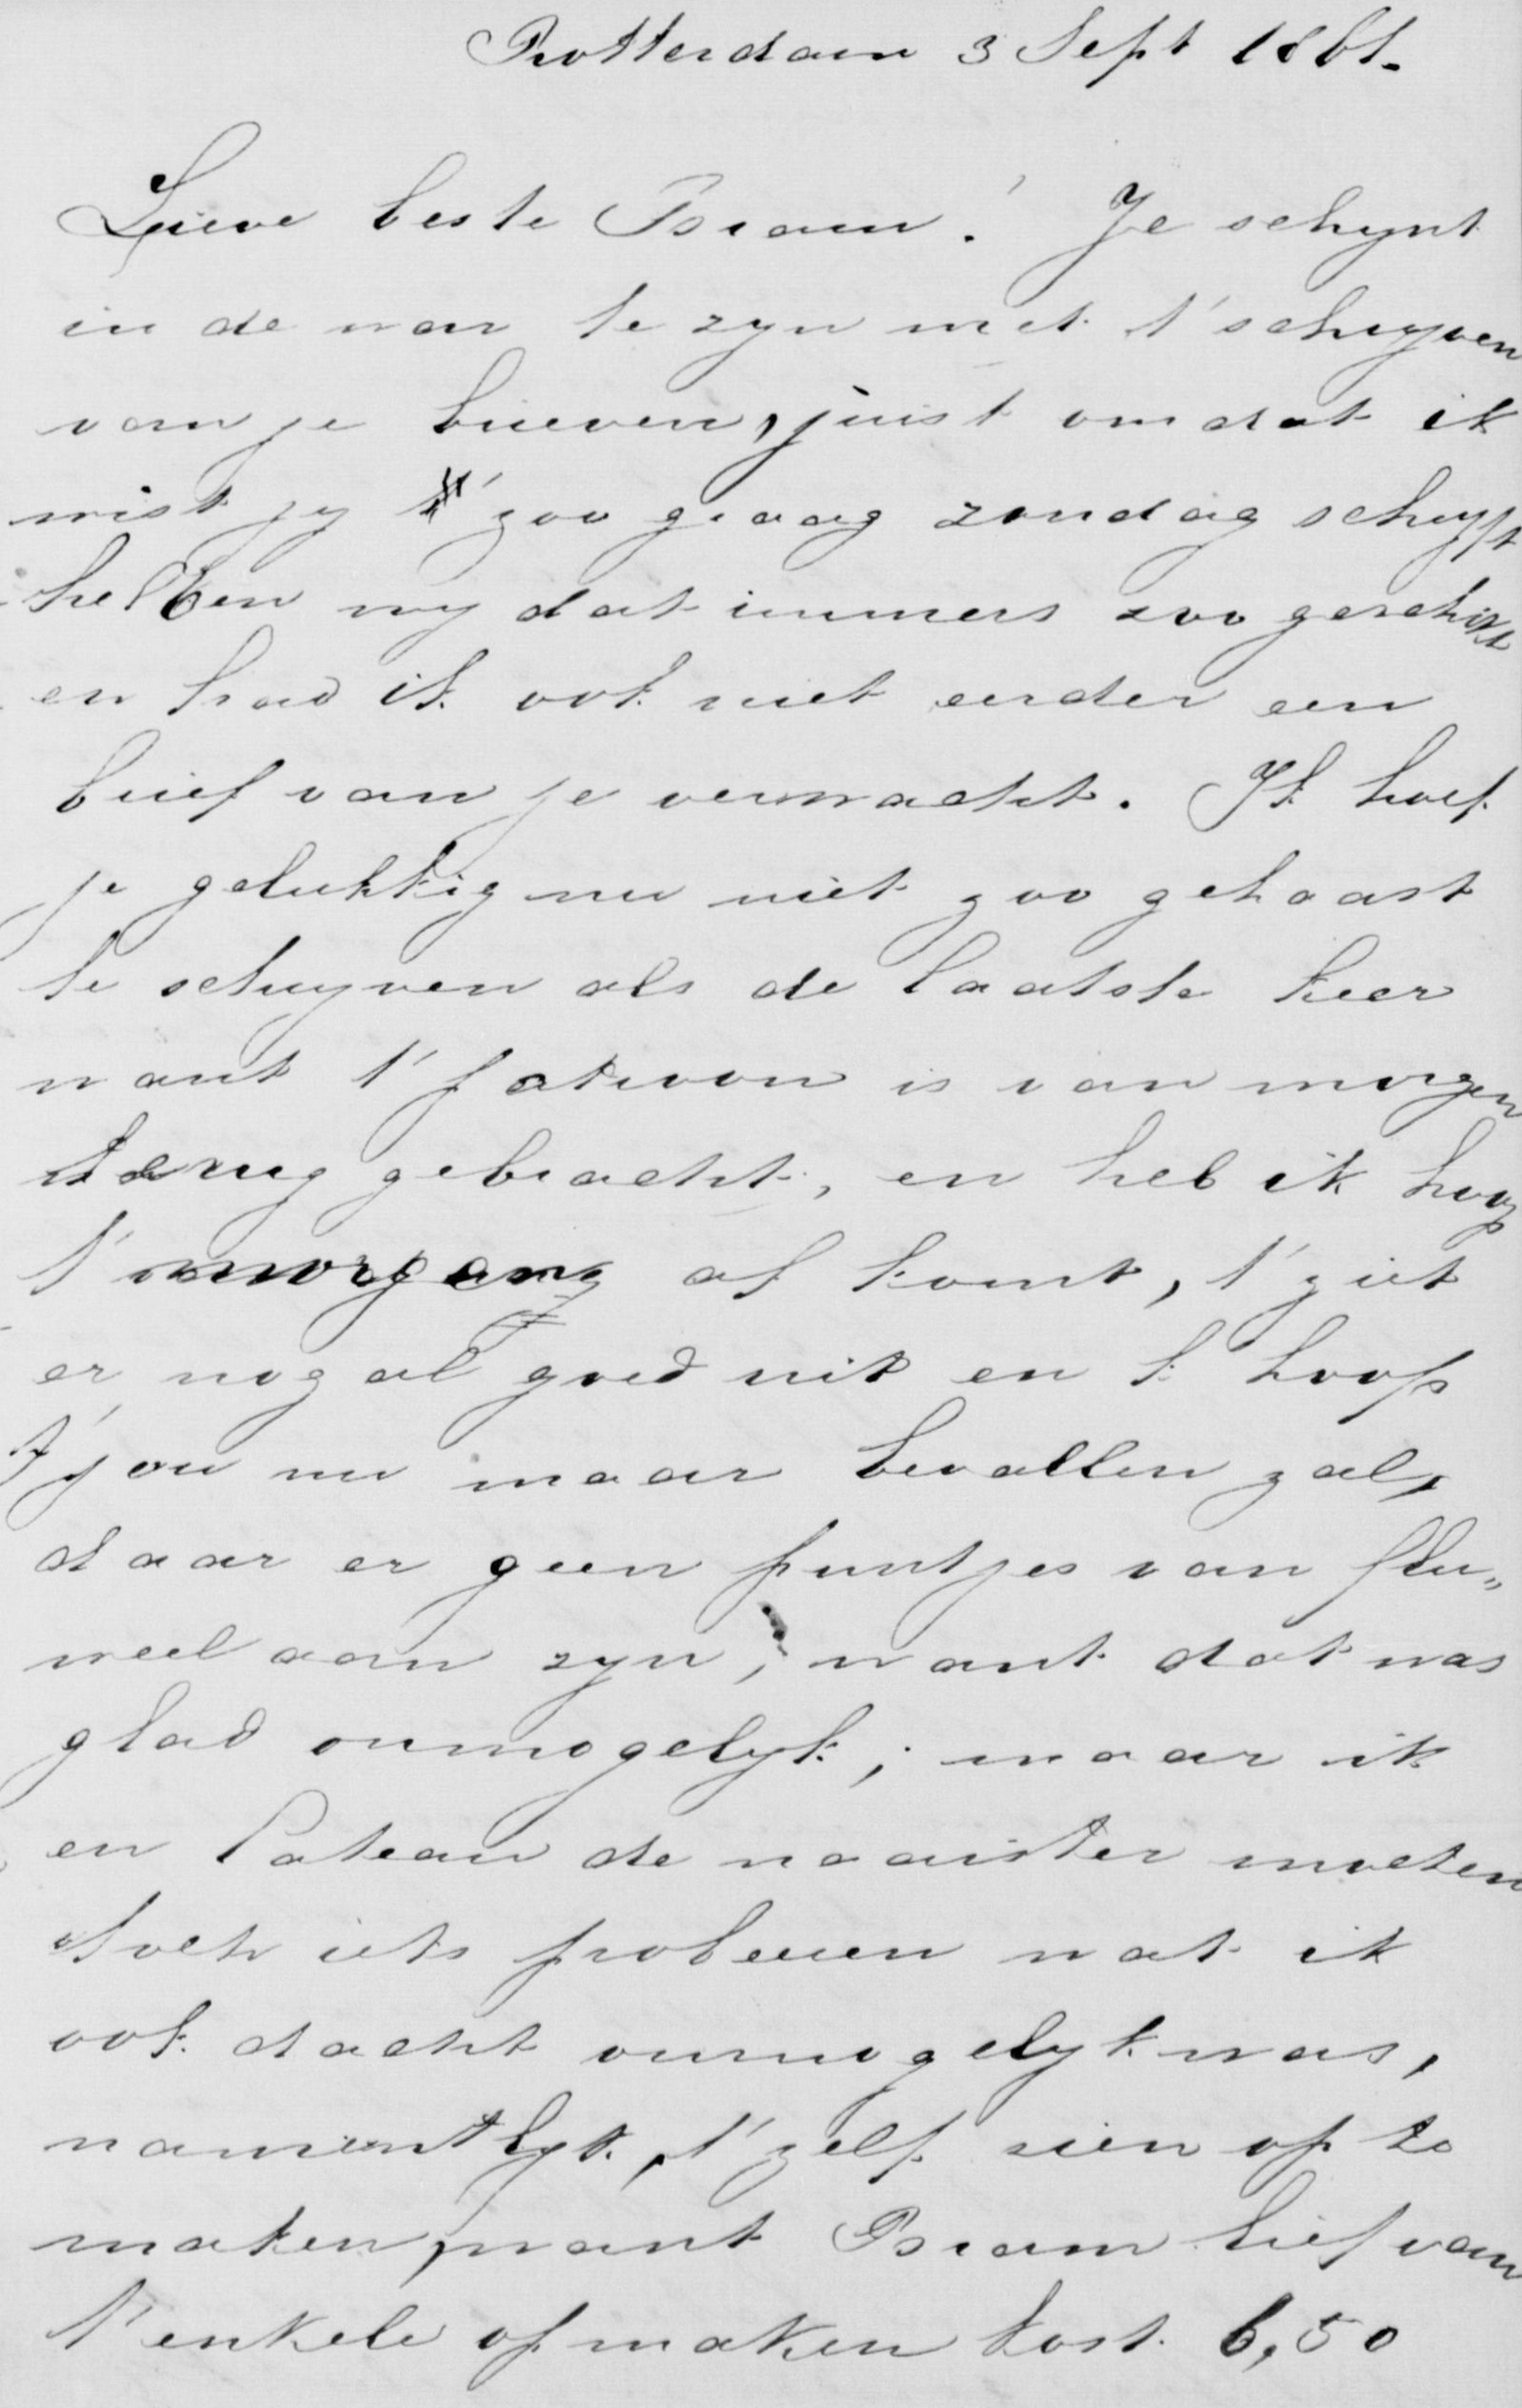 Rotterdam 3 Sept 1861.
Lieve beste Bram! Je schynt
in de war te zyn met t'schryven
van je brieven, juist omdat ik
wist jy t' zoo graag zondag schryft
hebben wy dat immers zoo geschikt
en had ik ook niet eerder een
brief van je verwacht. Ik hoef
je gelukkig nu niet zoo gehaast
te schryven als de laatste keer
want t' patroon is van morgen
terug gebracht, en heb ik hoop
t' morgen af komt, t' ziet
er nog al goed uit en k hoop
t' jou nu maar bevallen zal,
daar er geen puntjes van flu„
weel aan zyn, want dat was
glad onmogelyk; maar ik
en Pateau de naaister moeten
toch iets probeeren wat ik
ook dacht onmogelyk was,
namentlyk, t' zelf zien op te
maken, want Bram lief van
t' enkele opmaken kost 6,50